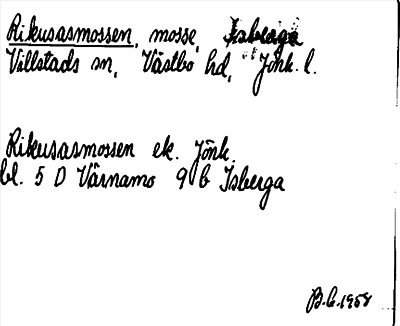 Rikusasmossen, mosse, Isberga
Villstads sn, Västbo hd, Jönk. l.
Rikusasmossen ek. Jönk.
bl. 5 D Värnamo 9 b Isberga
B.L. 1958